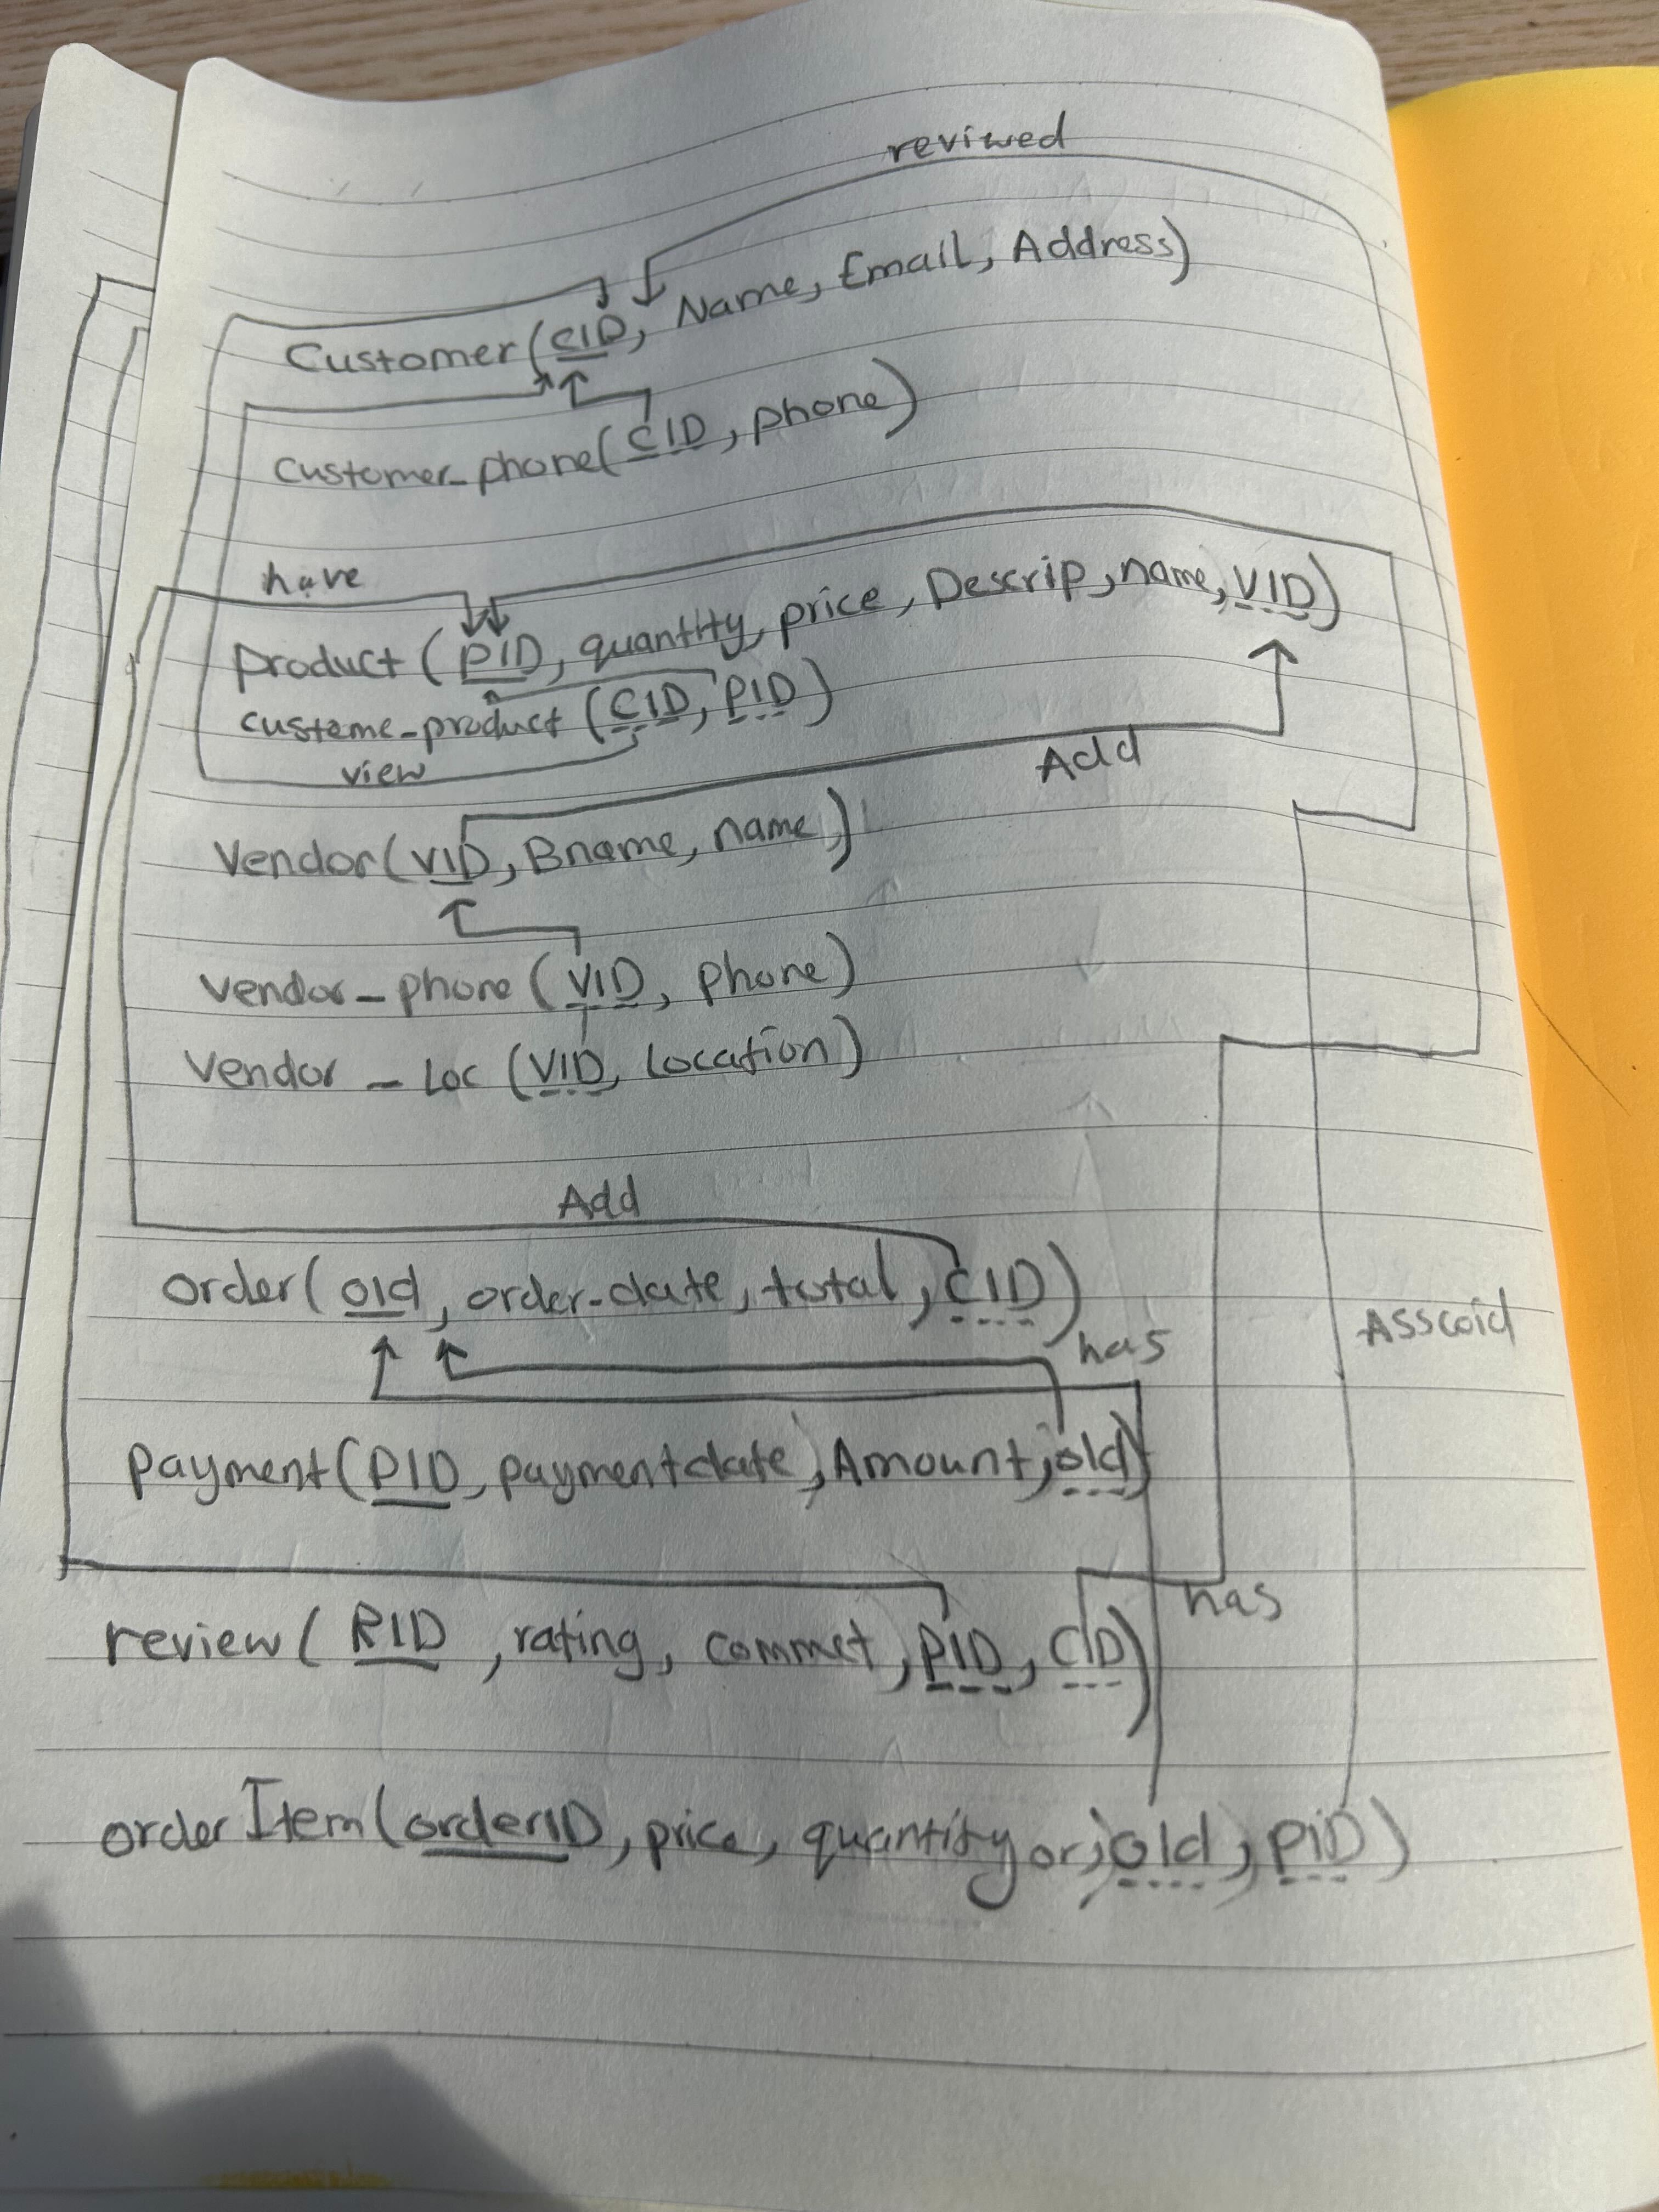 reviwed
Customer(CID, Name, Email, Address)
customer_phone(CID, phone)
have
product(PID, quantity, price, Descrip, name, VID)
custeme_product(CID, PID)
view
Add
Vendor(VID, Bname, name)
vendor_phone(VID, phone)
Vendor_Loc(VID, Location)
Add
order(oId, order-date, total, CID)
has
Asscoid
payment(PID, paymentdate, Amount, oId)
has
review(RID, rating, commet, PID, CID)
orderItem(orderID, price, quantity or, oId, PID)